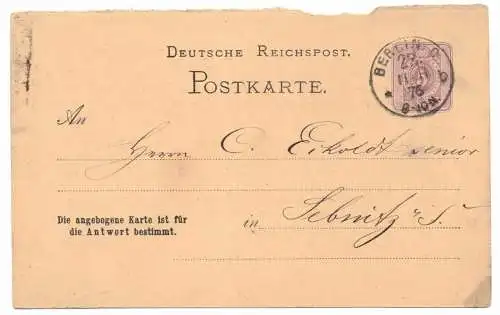 DEUTSCHE REICHSPOST.
POSTKARTE.
BERLIN, O.
76
8-10N.
An
Herrn C. Eikoldt senior
Die angebogene Karte ist für
die Antwort bestimmt.
in Sebnitz i. S.